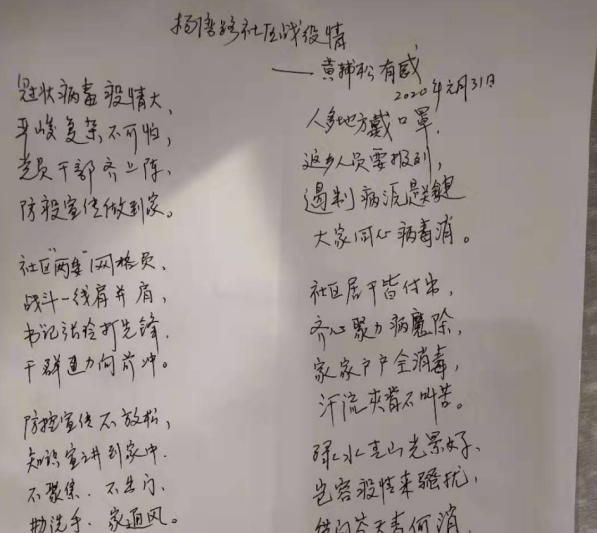 杨湾路社区战疫情
——黄赫松有感
2020年元月31日
冠状病毒疫情大,
严峻复杂不可怕,
党员干部齐上阵、
防疫宣传做到家。
社区"两委"网格员、
战斗一线肩并肩,
书记张玲打先锋.
干群通力向前冲。
防控宣传不放松,
知识宣讲到家中.
不聚集.不出门、
勤洗手.家通风。
人多地方戴口罩.
返乡人员要报到,
遏制病源是关键
大家同心病毒消。
社区居干皆付出,
齐心聚力病魔除,
家家户户全消毒,
汗流夹背不叫苦。
绿水青山光景好、
岂容疫情来骚扰,